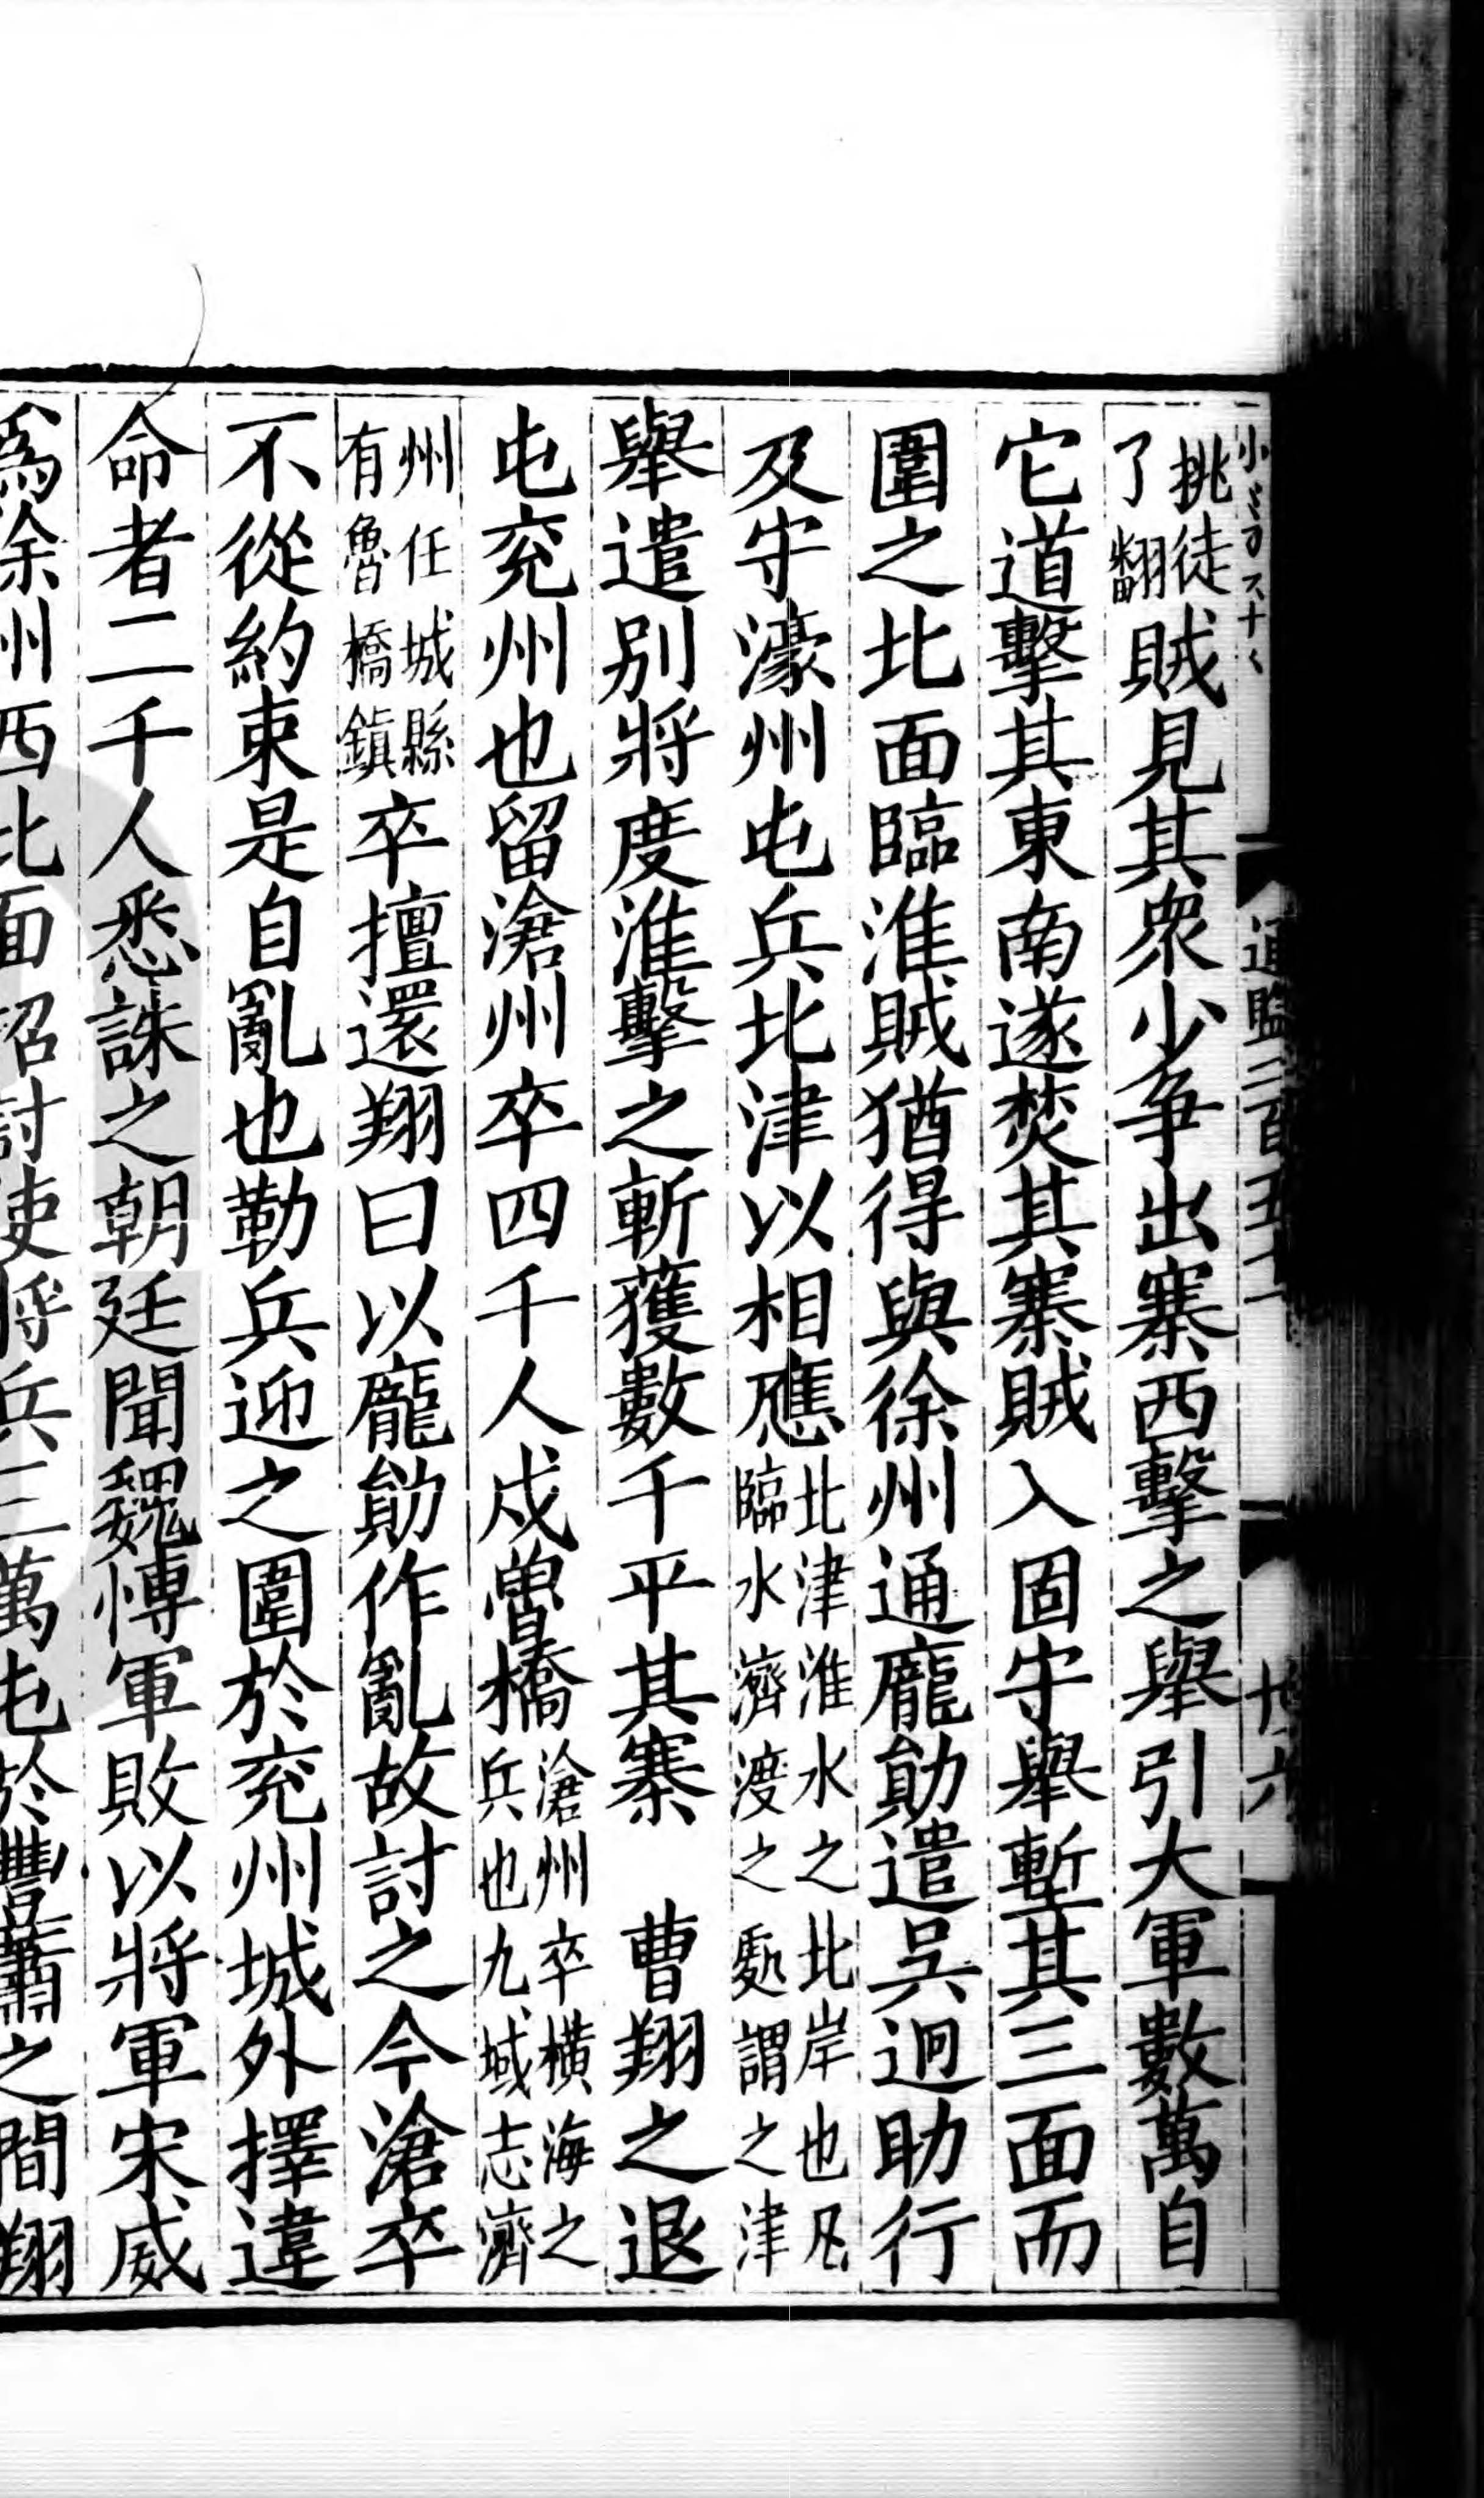 挑徒了翻賊見其衆少争出寨西擊之舉引大軍數萬自
它道擊其東南遂焚其寨賊入固守舉塹其三面而
圍之北面臨淮賊猶得與徐州通龐勛遣吴迥助行
及守濠州屯兵北津以相應北津淮水之北岸也凡臨水濟渡之處謂之津
舉遣别將度淮擊之斬獲數千平其寨 曹翔之退
屯兖州也留滄州卒四千人戍魯橋滄州卒横海之兵也九域志濟
州任城縣有魯橋鎮卒擅還翔曰以龐勛作亂故討之今滄卒
不從約束是自亂也勒兵迎之圍於兖州城外擇違
命者二千人悉誅之朝廷聞魏愽軍敗以將軍宋威
爲徐州西北面招討使將兵三萬屯於豐蕭之間翔